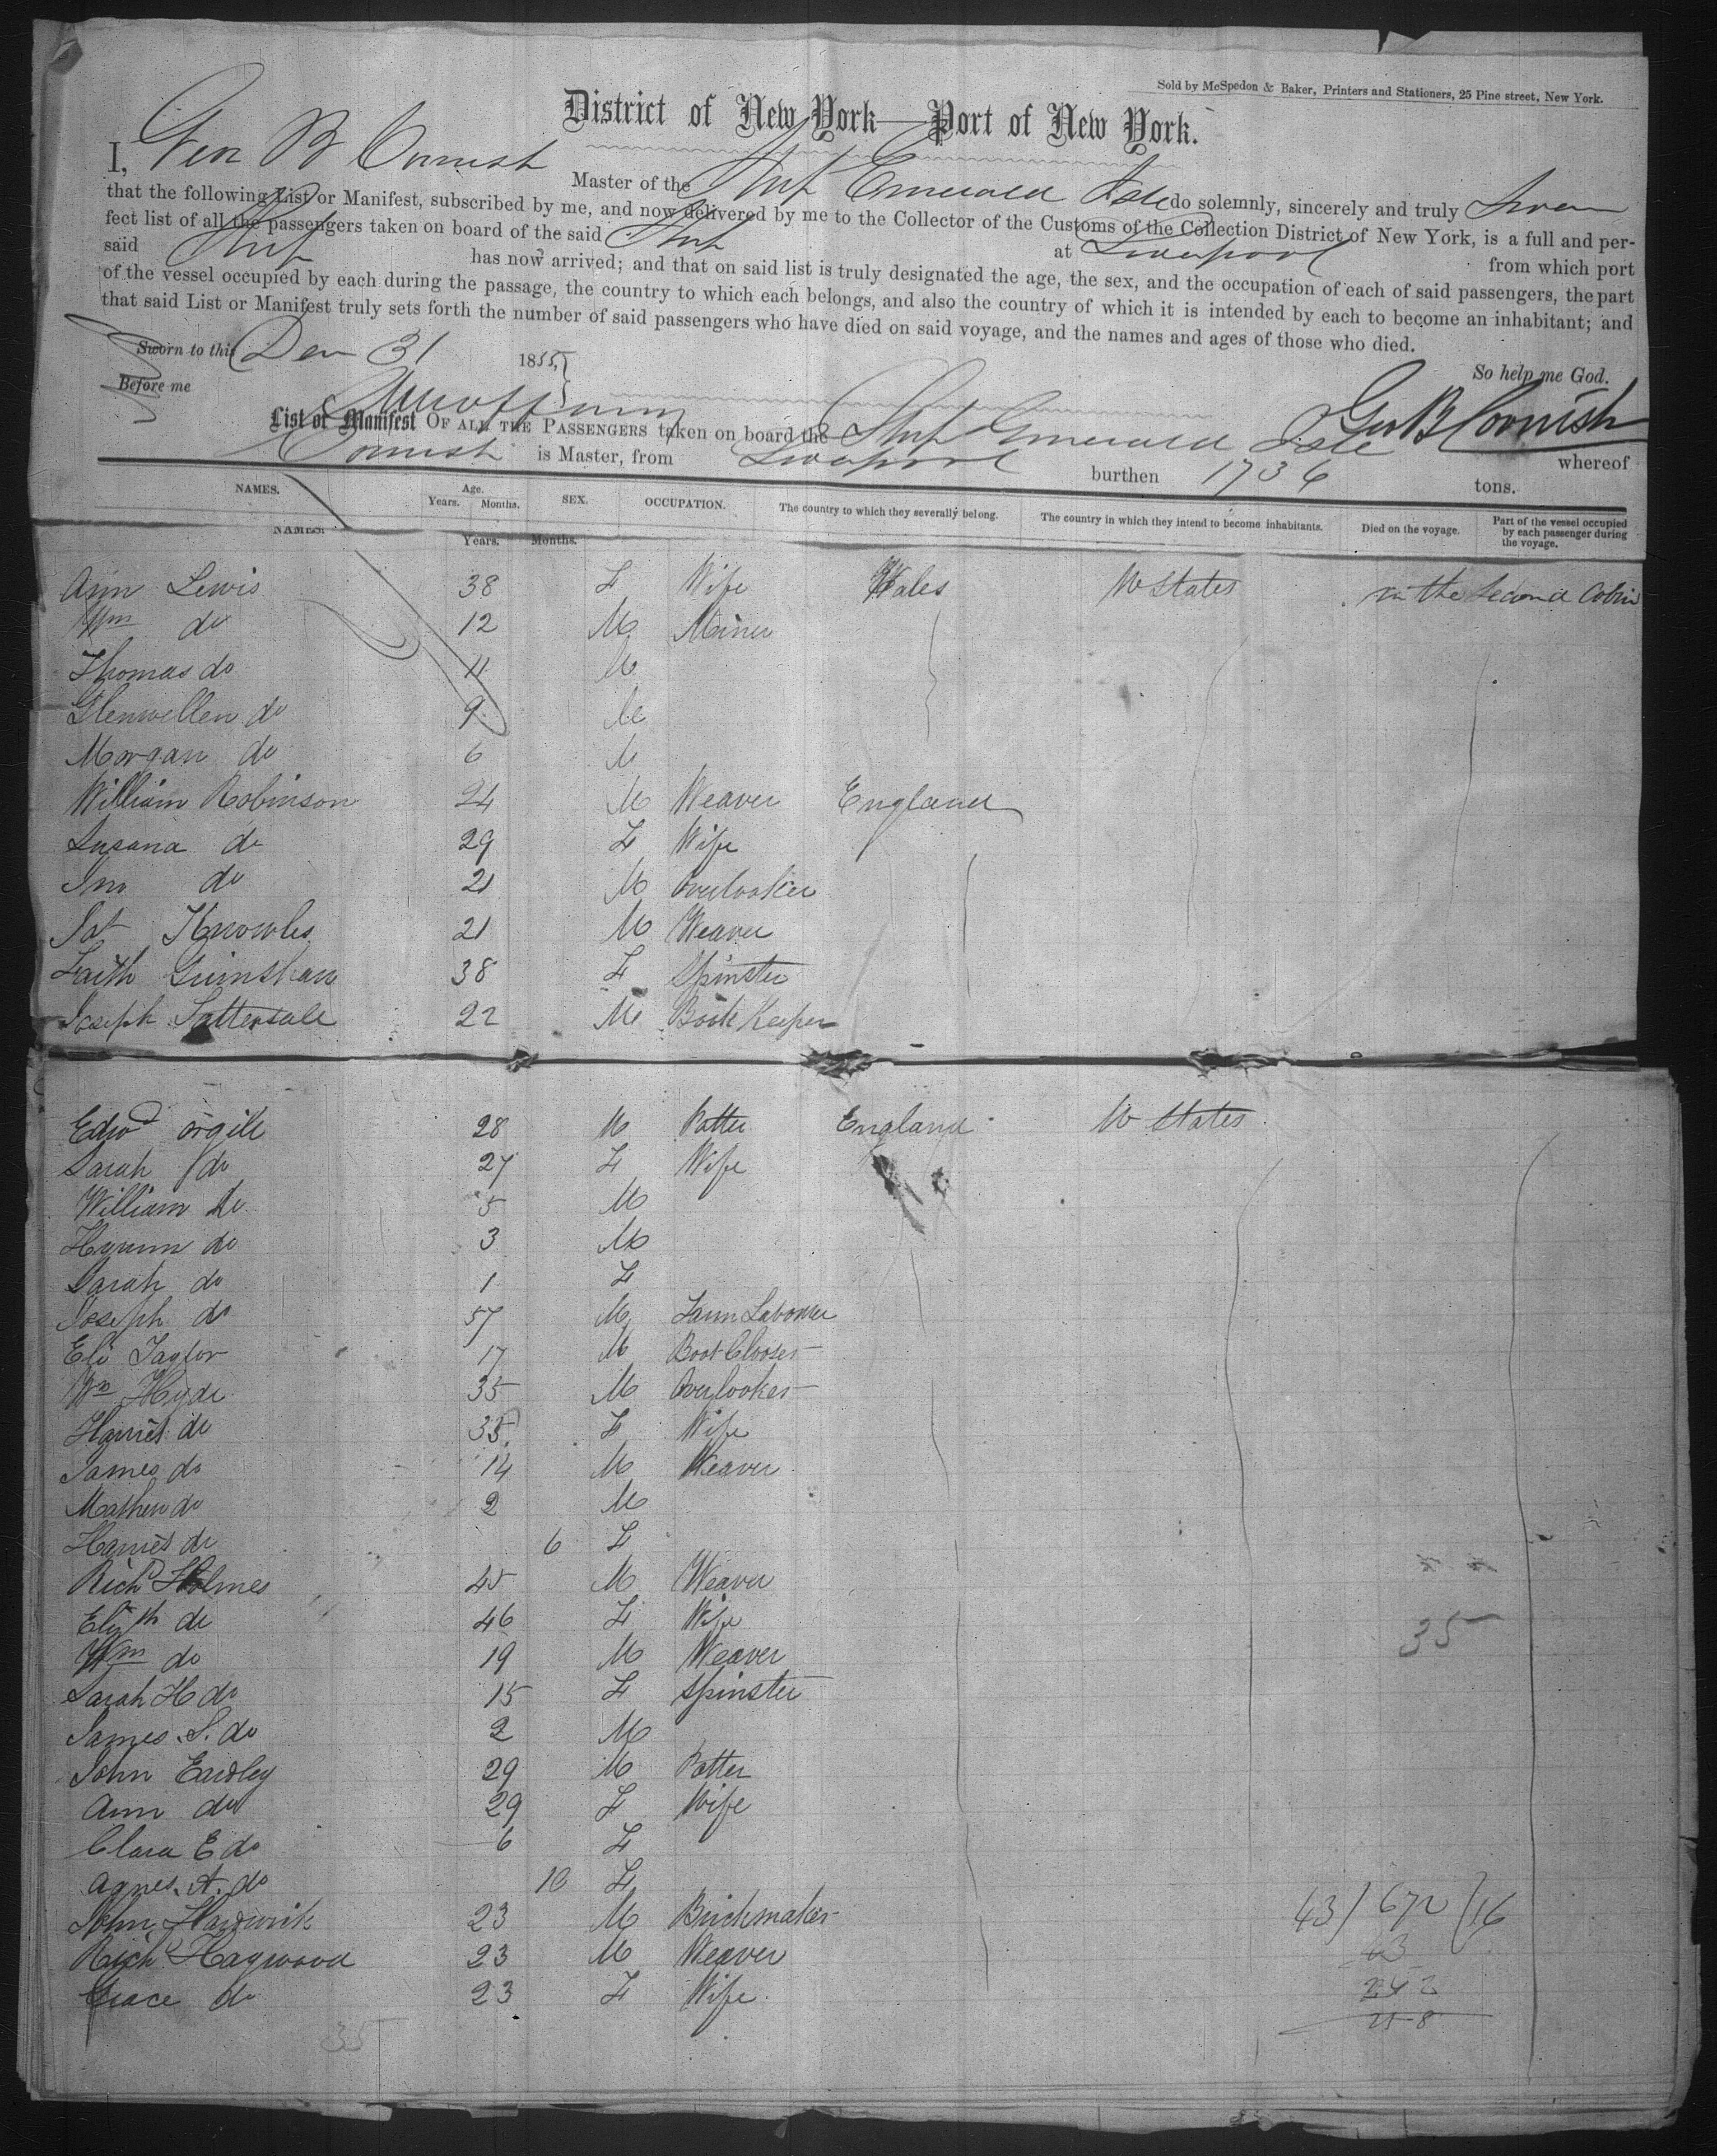 Sold by McSpedon & Baker, Printers and Stationers, 25 Pine street, New York.
District of New York—Port of New York.
I, Geo B Cornish Master of the Ship Emerald Isle do solemnly, sincerely and truly Swear
that the following List or Manifest, subscribed by me, and now delivered by me to the Collector of the Customs of the Collection District of New York, is a full and per-
fect list of all the passengers taken on board of the said Ship at Liverpool from which port
said Ship has now arrived; and that on said list is truly designated the age, the sex, and the occupation of each of said passengers, the part
of the vessel occupied by each during the passage, the country to which each belongs, and also the country of which it is intended by each to become an inhabitant; and
that said List or Manifest truly sets forth the number of said passengers who have died on said voyage, and the names and ages of those who died.
So help me God.
Sworn to this Dec 31 1855,
Before me
Geo B Cornish
List or Manifest OF ALL THE PASSENGERS taken on board the Ship Emerald Isle whereof
Cornish is Master, from Liverpool burthen 1736 tons.
NAMES. Age. Years. Months. SEX. OCCUPATION. The country to which they severally belong. The country in which they intend to become inhabitants. Died on the voyage. Part of the vessel occupied by each passenger during the voyage.
NAMES. Years. Months.
Ann Lewis 38 F Wife Wales U States in the Second Cabin
Wm do 12 M Miner
Thomas do 11 M
Glenwellen do 9 M
Morgan do 6 M
William Robinson 24 M Weaver England
Susana do 29 F Wife
Jno do 21 M Overlooker
Pat Knowles 21 M Weaver
Faith Grimshaw 38 F Spinster
Joseph Tattersall 22 M Book Keeper
Edwd Orgill 28 M Potter England U States
Sarah do 27 F Wife
William do 5 M
Hyrum do 3 M
Sarah do 1 F
Joseph do 57 M Farm Labourer
Eli Taylor 17 M Boot Clooser
Wm Hyde 35 M Overlooker
Harriet do 35 F Wife
James do 14 M Weaver
Mathew do 2 M
Harriet do 6 F
Richd Holmes 45 M Weaver
Elizth do 46 F Wife
35
Wm do 19 M Weaver
Sarah H do 15 F Spinster
James S. do 2 M
John Eardley 29 M Potter
Ann do 29 F Wife
Clara E do 6 F
Agnes A. do 10 F
John Hardwick 23 M Brickmaker 43) 672 (16
Richd Haywood 23 M Weaver 43
Grace do 23 F Wife 242
35